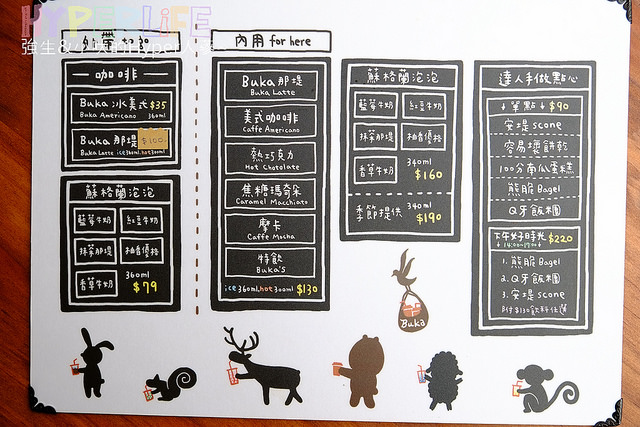 HYPERLIFE
強生&小吠的Hyper人蔘
外帶 to go
咖啡
Buka 冰美式 $35
Buka Americano 360ml
Buka 那堤 $100
Buka Latte ice360ml.hot300ml
蘇格蘭泡泡
藍莓牛奶 紅豆牛奶
抹茶那堤 柚香優格
香草牛奶 360ml
$79
內用 for here
Buka 那堤
Buka Latte
美式咖啡
Caffe Americano
熱巧克力
Hot Chotolate
焦糖瑪奇朵
Caramel Macchiato
摩卡
Caffe Mocha
特飲
Buka's
ice 360ml.hot 300ml $130
蘇格蘭泡泡
藍莓牛奶 紅豆牛奶
抹茶那堤 柚香優格
香草牛奶 340ml
$160
季節提供 340ml
$190
Buka
達人手做點心
單點 $90
安堤 scone
容易壞餅乾
100分南瓜蛋糕
熊熊 Bagel
Q牙飯糰
下午好時光 $220
14:00-17:00
1. 熊熊 Bagel
2. Q牙飯糰
3. 安堤 scone
附$130飲料任選